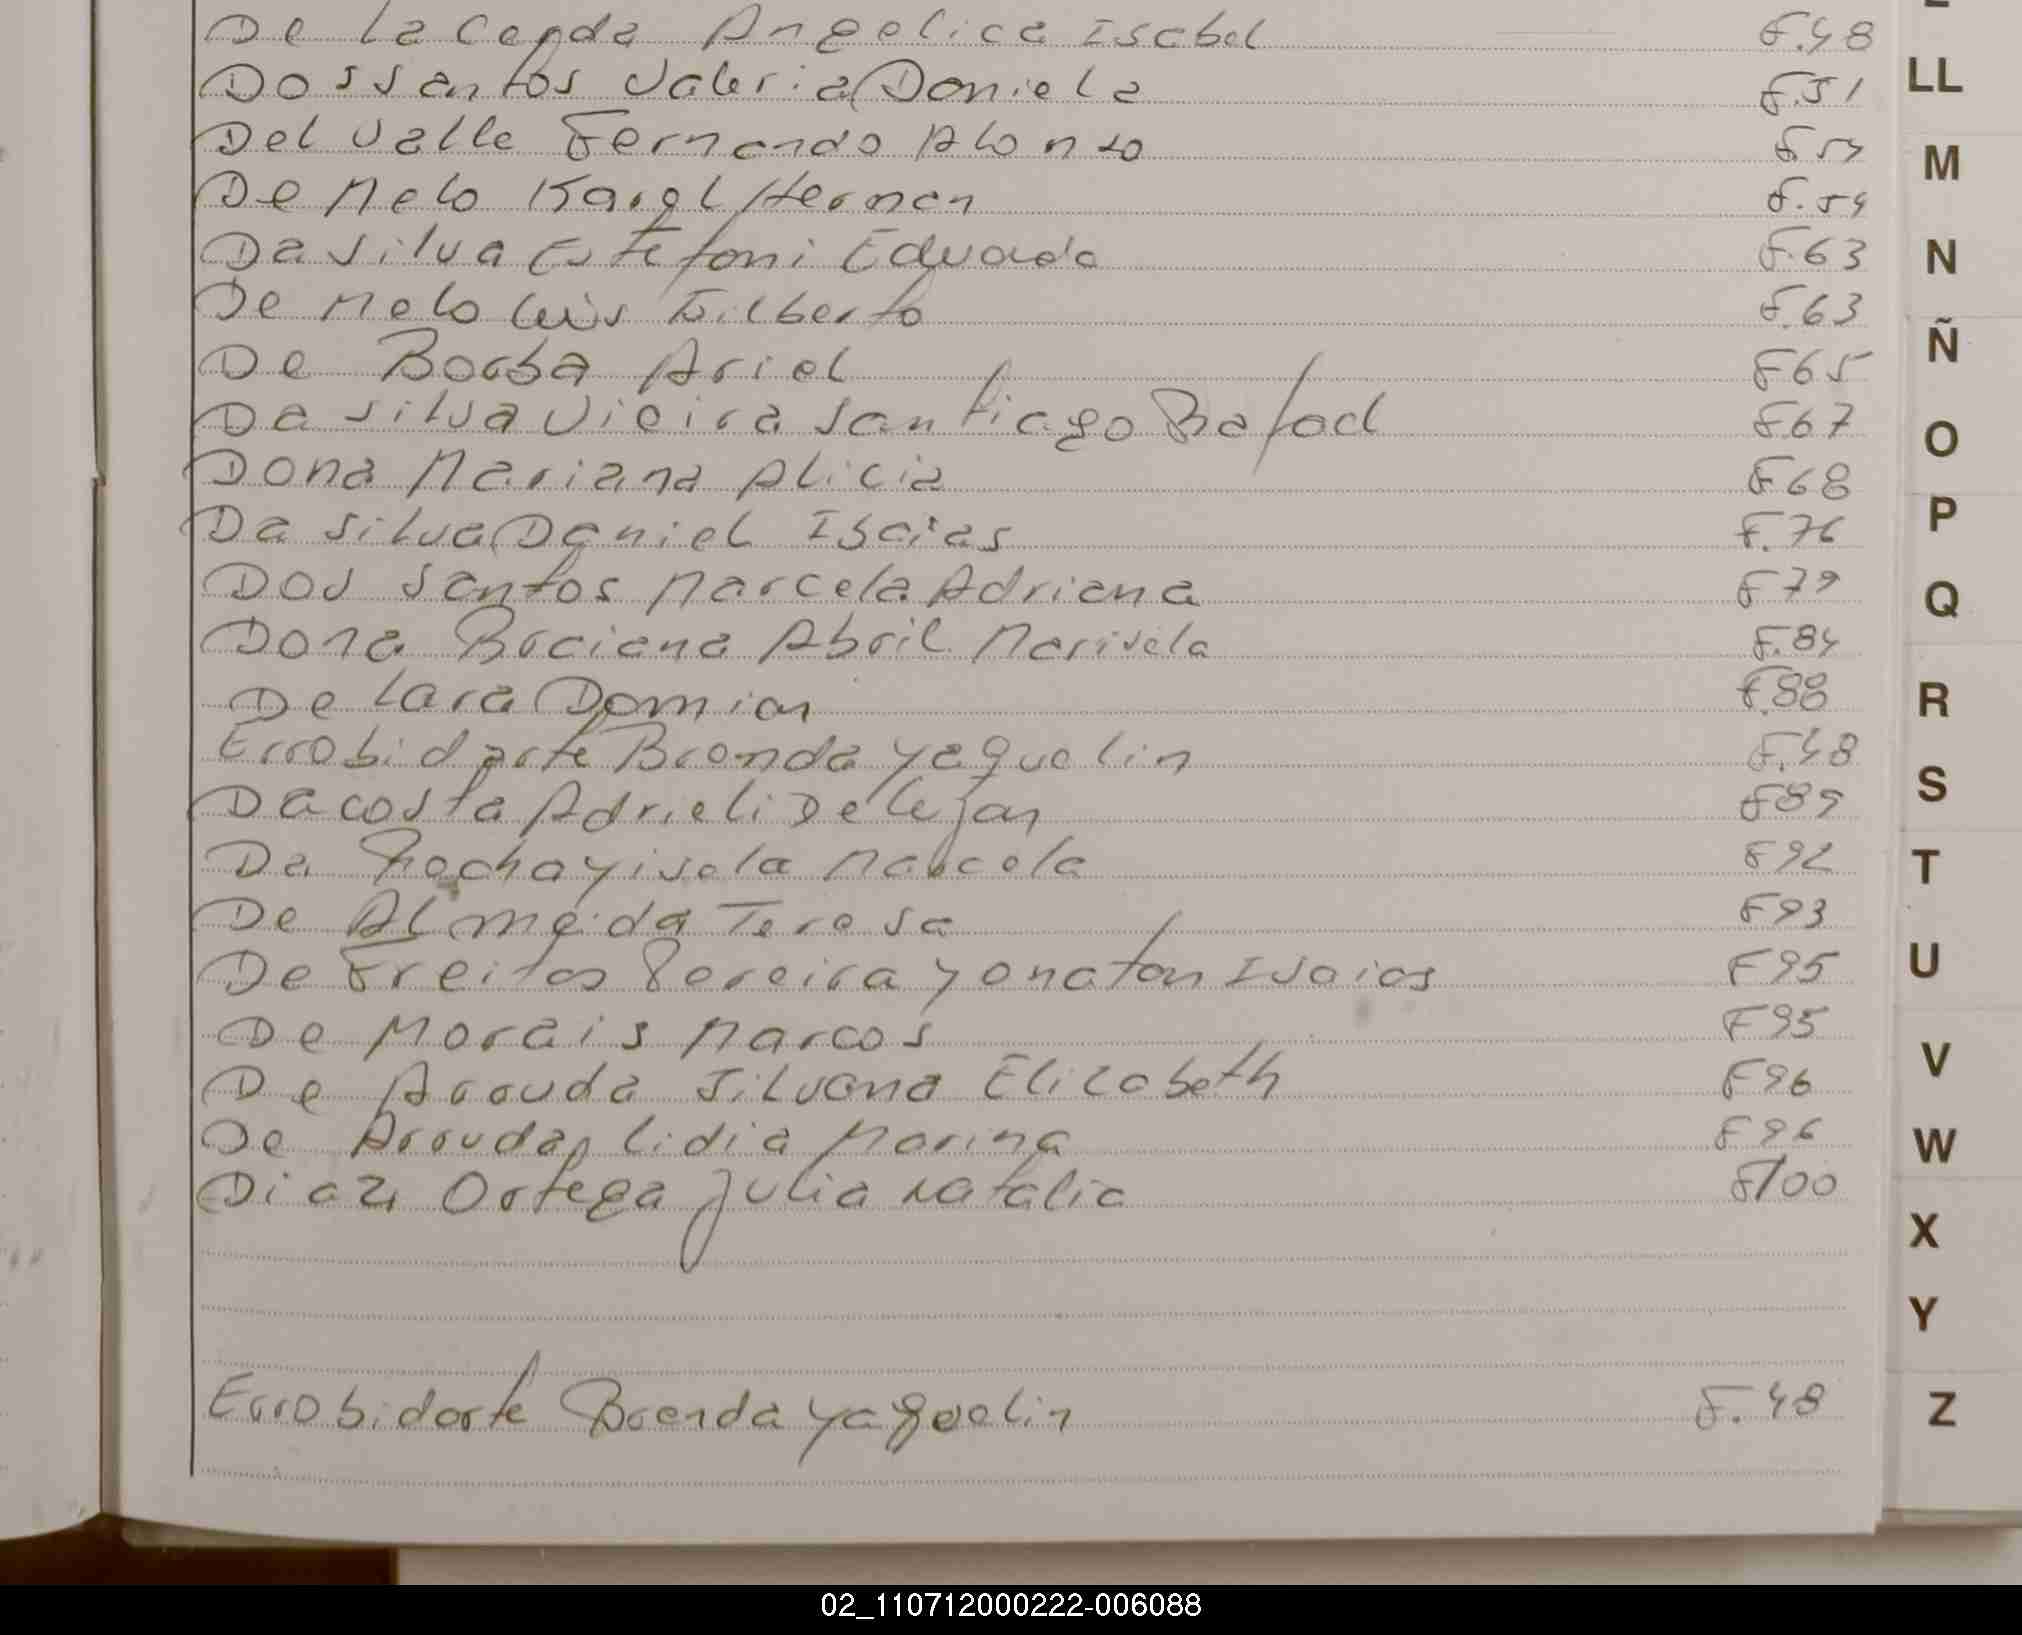 De La Cerda Angelica Isabel F.48
Dos Santos Valeria Daniela F.51
Del Valle Fernando Alonzo F 54
De Melo Kargl Hernan F.59
Da Silva Estefani Eduarda F.63
De Melo Luis Gilberto F.63
De Borba Ariel F65
Da Silva Vieira Santiago Rafael F.67
Dona Mariana Alicia F68
Da Silva Daniel Isaias F.76
Dos Santos Marcela Adriana F79
Dona Briciana Abril Marisela F.84
De Lara Domian F.88
Errobidarte Brenda Yaquelin F.48
Da costa Adrieli De Lujan F89
Da Rocha Yisela Marcela F92
De Almeida Teresa F93
De Freitas Pereira Yonatan Isaias F95
De Morais Marcos F95
De Arruda Silvana Elizabeth F96
De Arruda Lidia Marina F96
Diaz Ortega Julia Natalia F100
Errobidarte Brenda Yaquelin F.48
LL
M
N
Ñ
O
P
Q
R
S
T
U
V
W
X
Y
Z
02_110712000222-006088